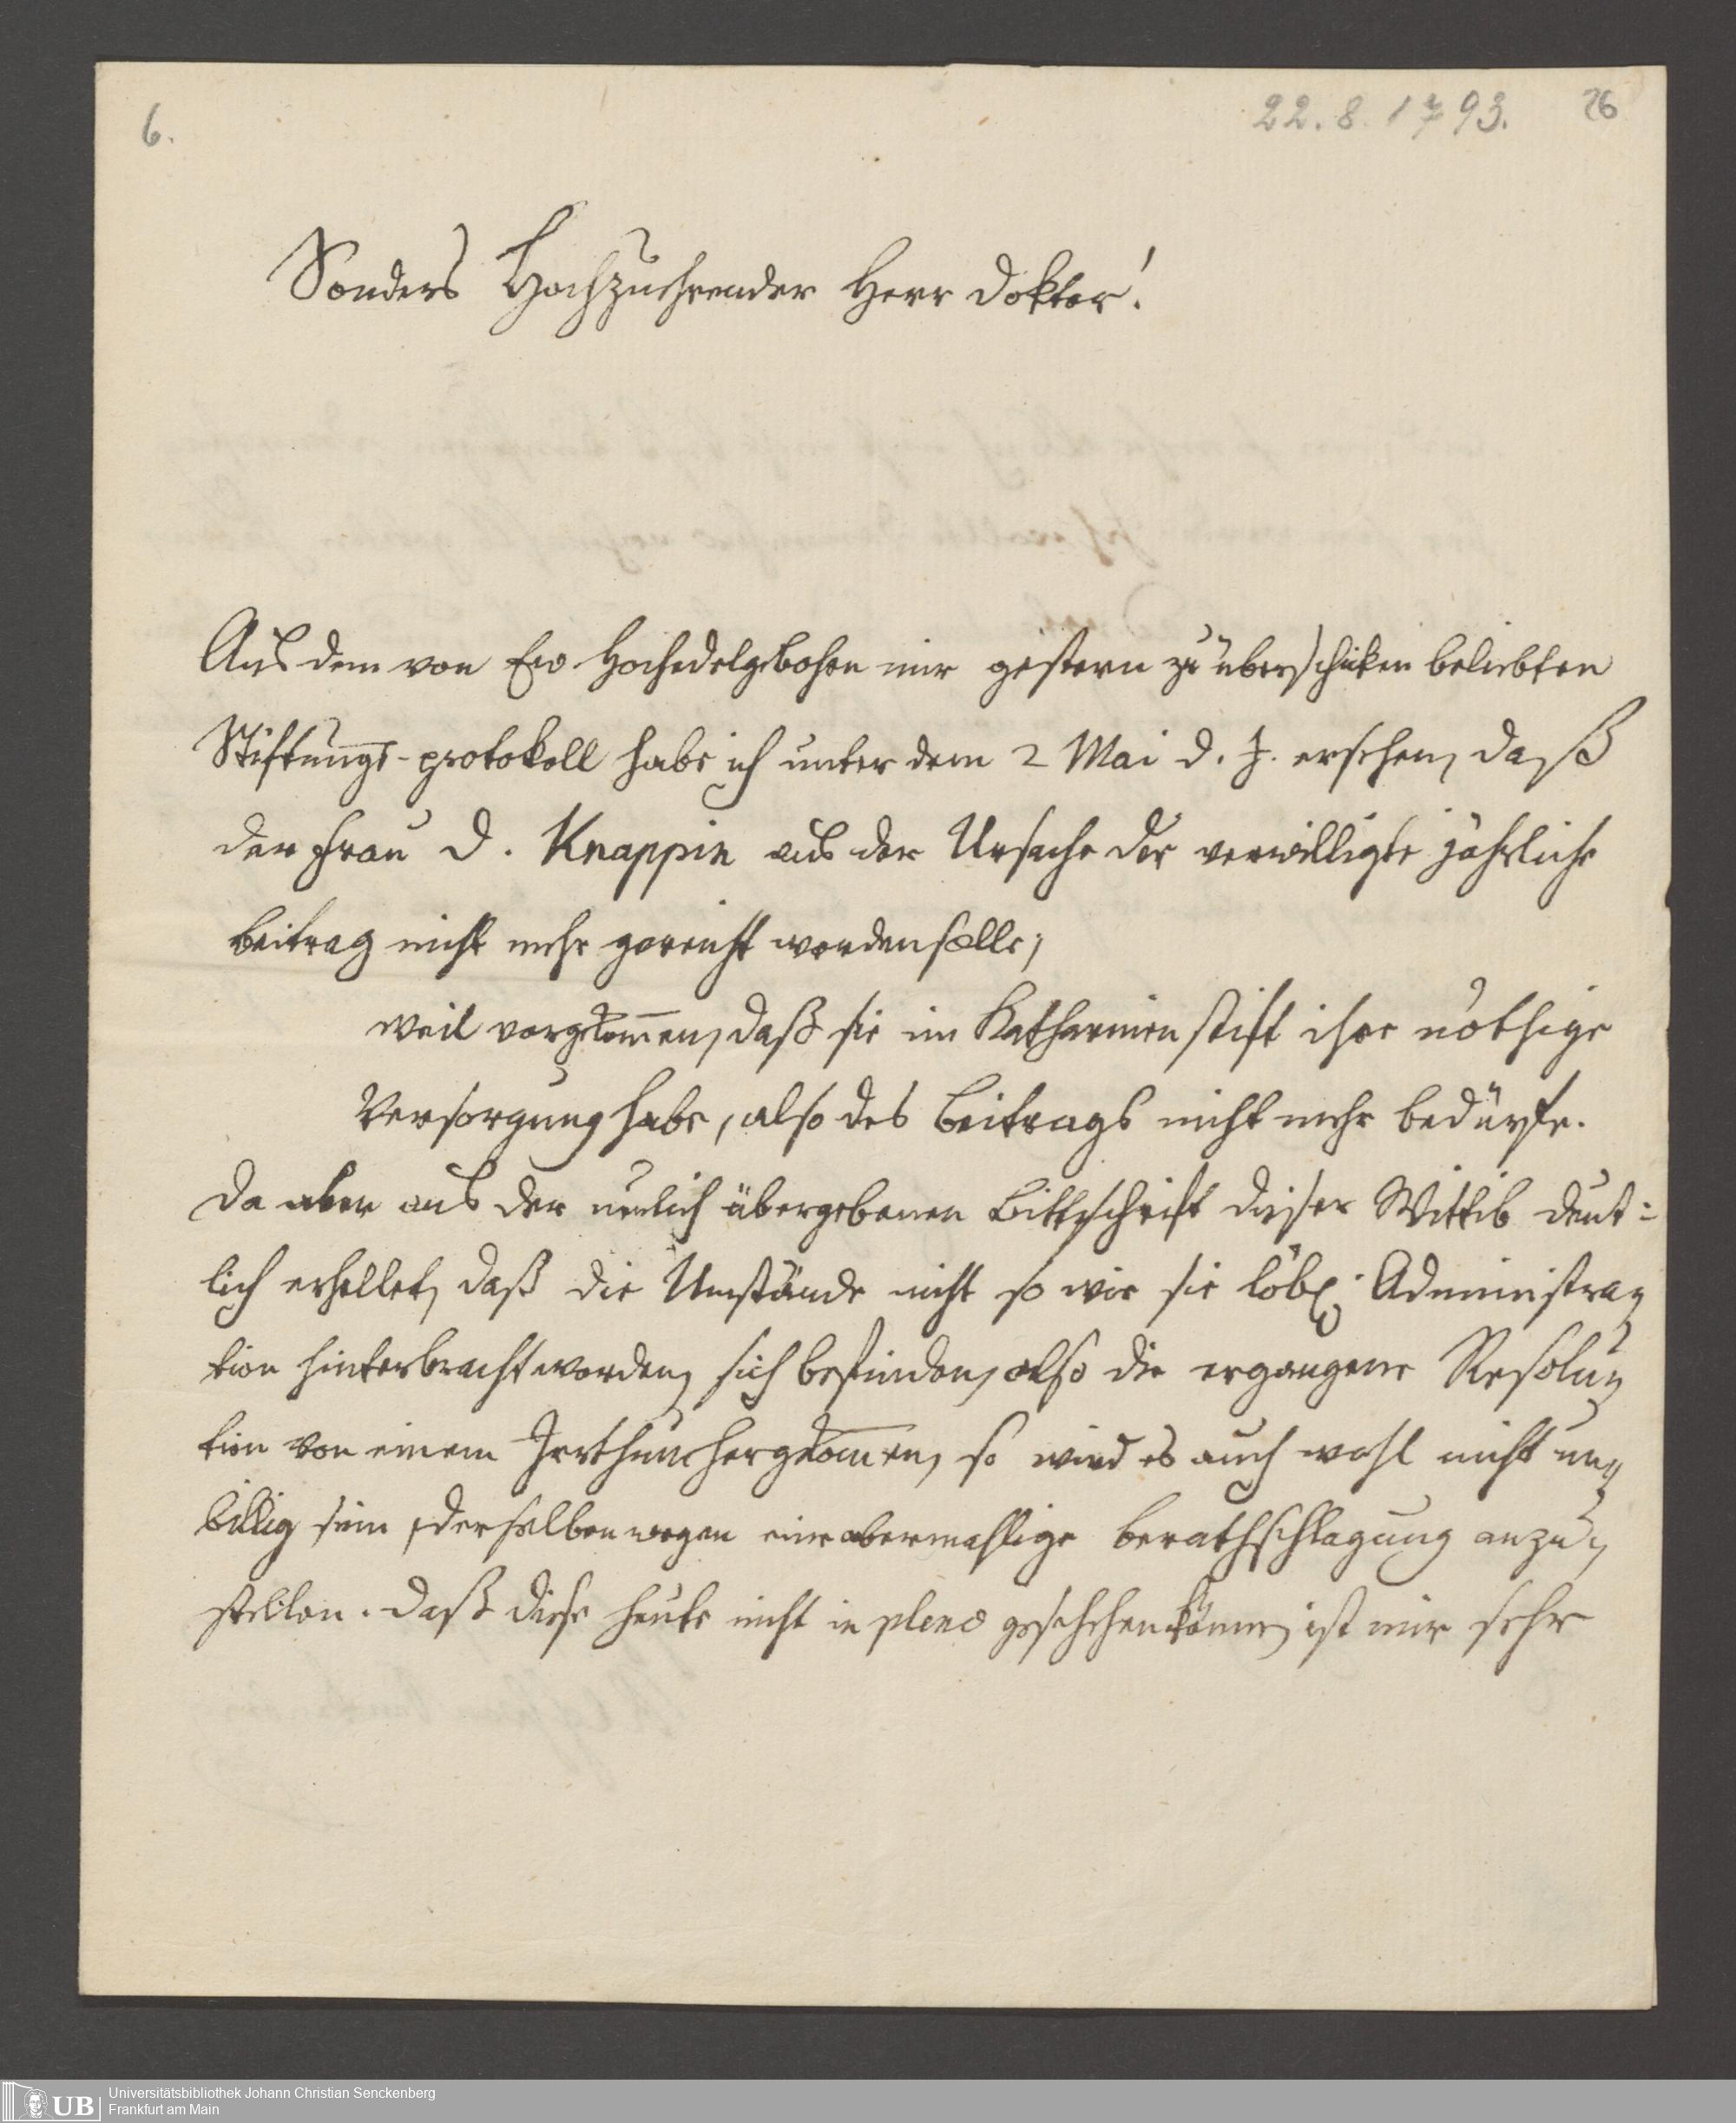 6.
22. 8. 1793. 26
Sonders Hochzuehrender Herr Doktor!
Aus dem von Ew Hochedelgebohren mir gestern zu überschicken beliebten
Stiftungs-protokoll habe ich unter dem 2 Mai d. J. ersehen, daß
der Frau D. Knappin aus der Ursache der verwilligte jährliche
beitrag nicht mehr gereicht werden solle;
weil vorgekommen, daß sie im Katharinenstift ihre nöthige
Versorgung habe, also des beitrags nicht mehr bedürfe.
da aber aus der neulich übergebenen bittschrift dieser Wittib deut-
lich erhellet, daß die Umstände nicht so wie sie löbl. Administra-
tion hinterbracht worden, sich befinden, also die ergangene Resolu-
tion von einem Irrthum hergekommen, so wird es auch wohl nicht un-
billig sein, derselben wegen eine abermahlige berathschlagung anzu-
stellen. daß diese heute nicht in pleno geschehen könne, ist mir sehr
UB
Universitätsbibliothek Johann Christian Senckenberg
Frankfurt am Main